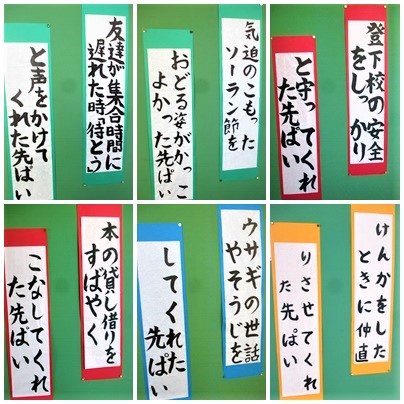 友達が集合時間に
遅れた時「待とう」
と声をかけて
くれた先ぱい
気迫のこもった
ソーラン節を
おどる姿がかっこ
よかった先ぱい
登下校の安全
をしっかり
と守ってくれ
た先ぱい
本の貸し借りを
すばやく
こなしてくれ
た先ぱい
ウサギの世話
やそうじを
してくれた
先ぱい
けんかをした
ときに仲直
りさせてくれ
た先ぱい